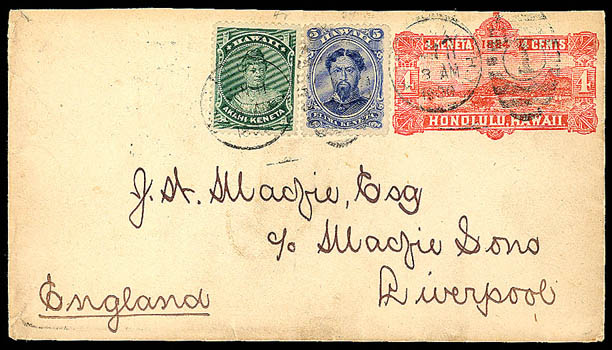 HAWAII
AKAHI KENETA
5 HAWAII 5
ELIMA KENETA
4 KENETA 1884 4 CENTS
4 4
HONOLULU, HAWAII.
8 AM
J. A. Macfie, Esq
c/o Macfie Sons
Liverpool
England